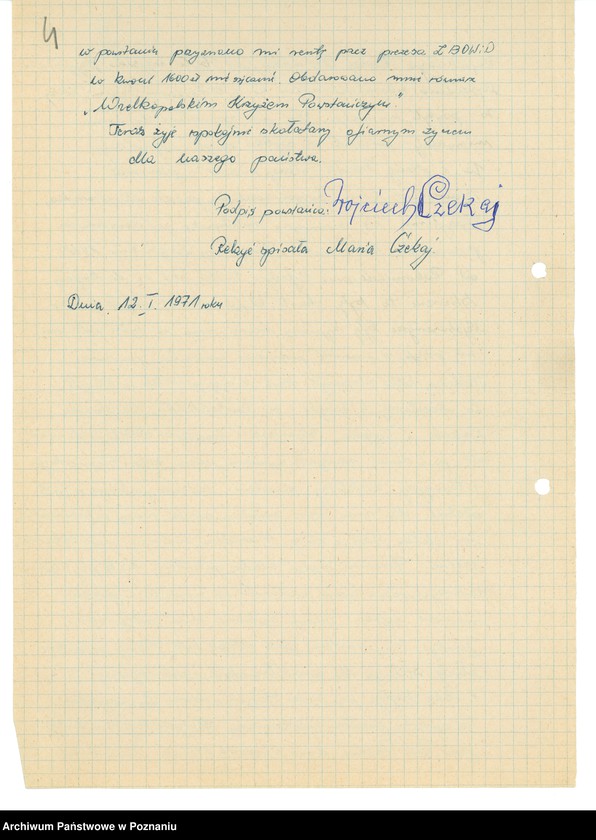 4
w powstaniu przyznano mi rentę przez prezesa ZBOWiD
w kwocie 1600 zł miesięcznie. Obdarowano mnie również
„Wielkopolskim Krzyżem Powstańczym."
Teraz żyję spokojnie skołatany ofiarnym życiem
dla naszego państwa.
Podpis powstańca: Wojciech Czekaj
Relację spisała Maria Czekaj.
Dnia. 12. I. 1971 roku
Archiwum Państwowe w Poznaniu